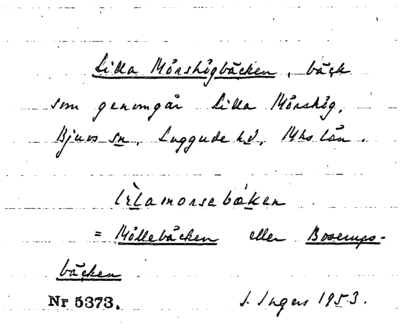 Lilla Mörshögbäcken, bäck
som genomgår Lilla Mörshög,
Bjuvs sn, Luggude hd, Mhs län.
= Möllebäcken eller Boserups-
bäcken
Nr 5373. I. Ingers 1953.